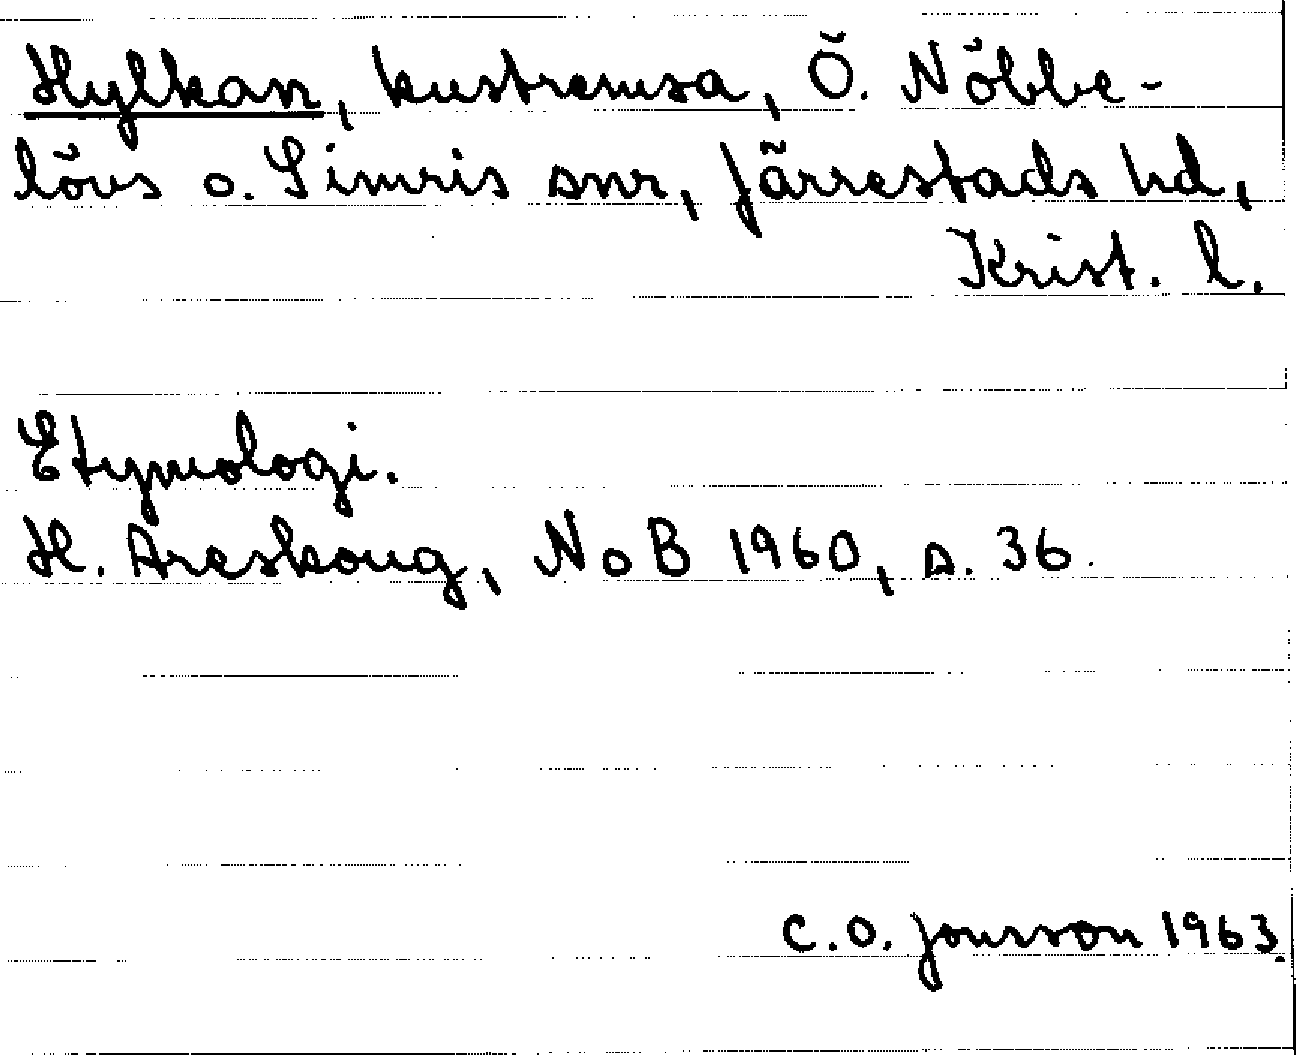 Hylkan, kustremsa, Ö. Nöbbe-
lövs o. Simris snr, Järrestads hd,
Krist. l.
Etymologi.
H. Areskoug, NoB 1960, s. 36.
C.O. Jonsson 1963.